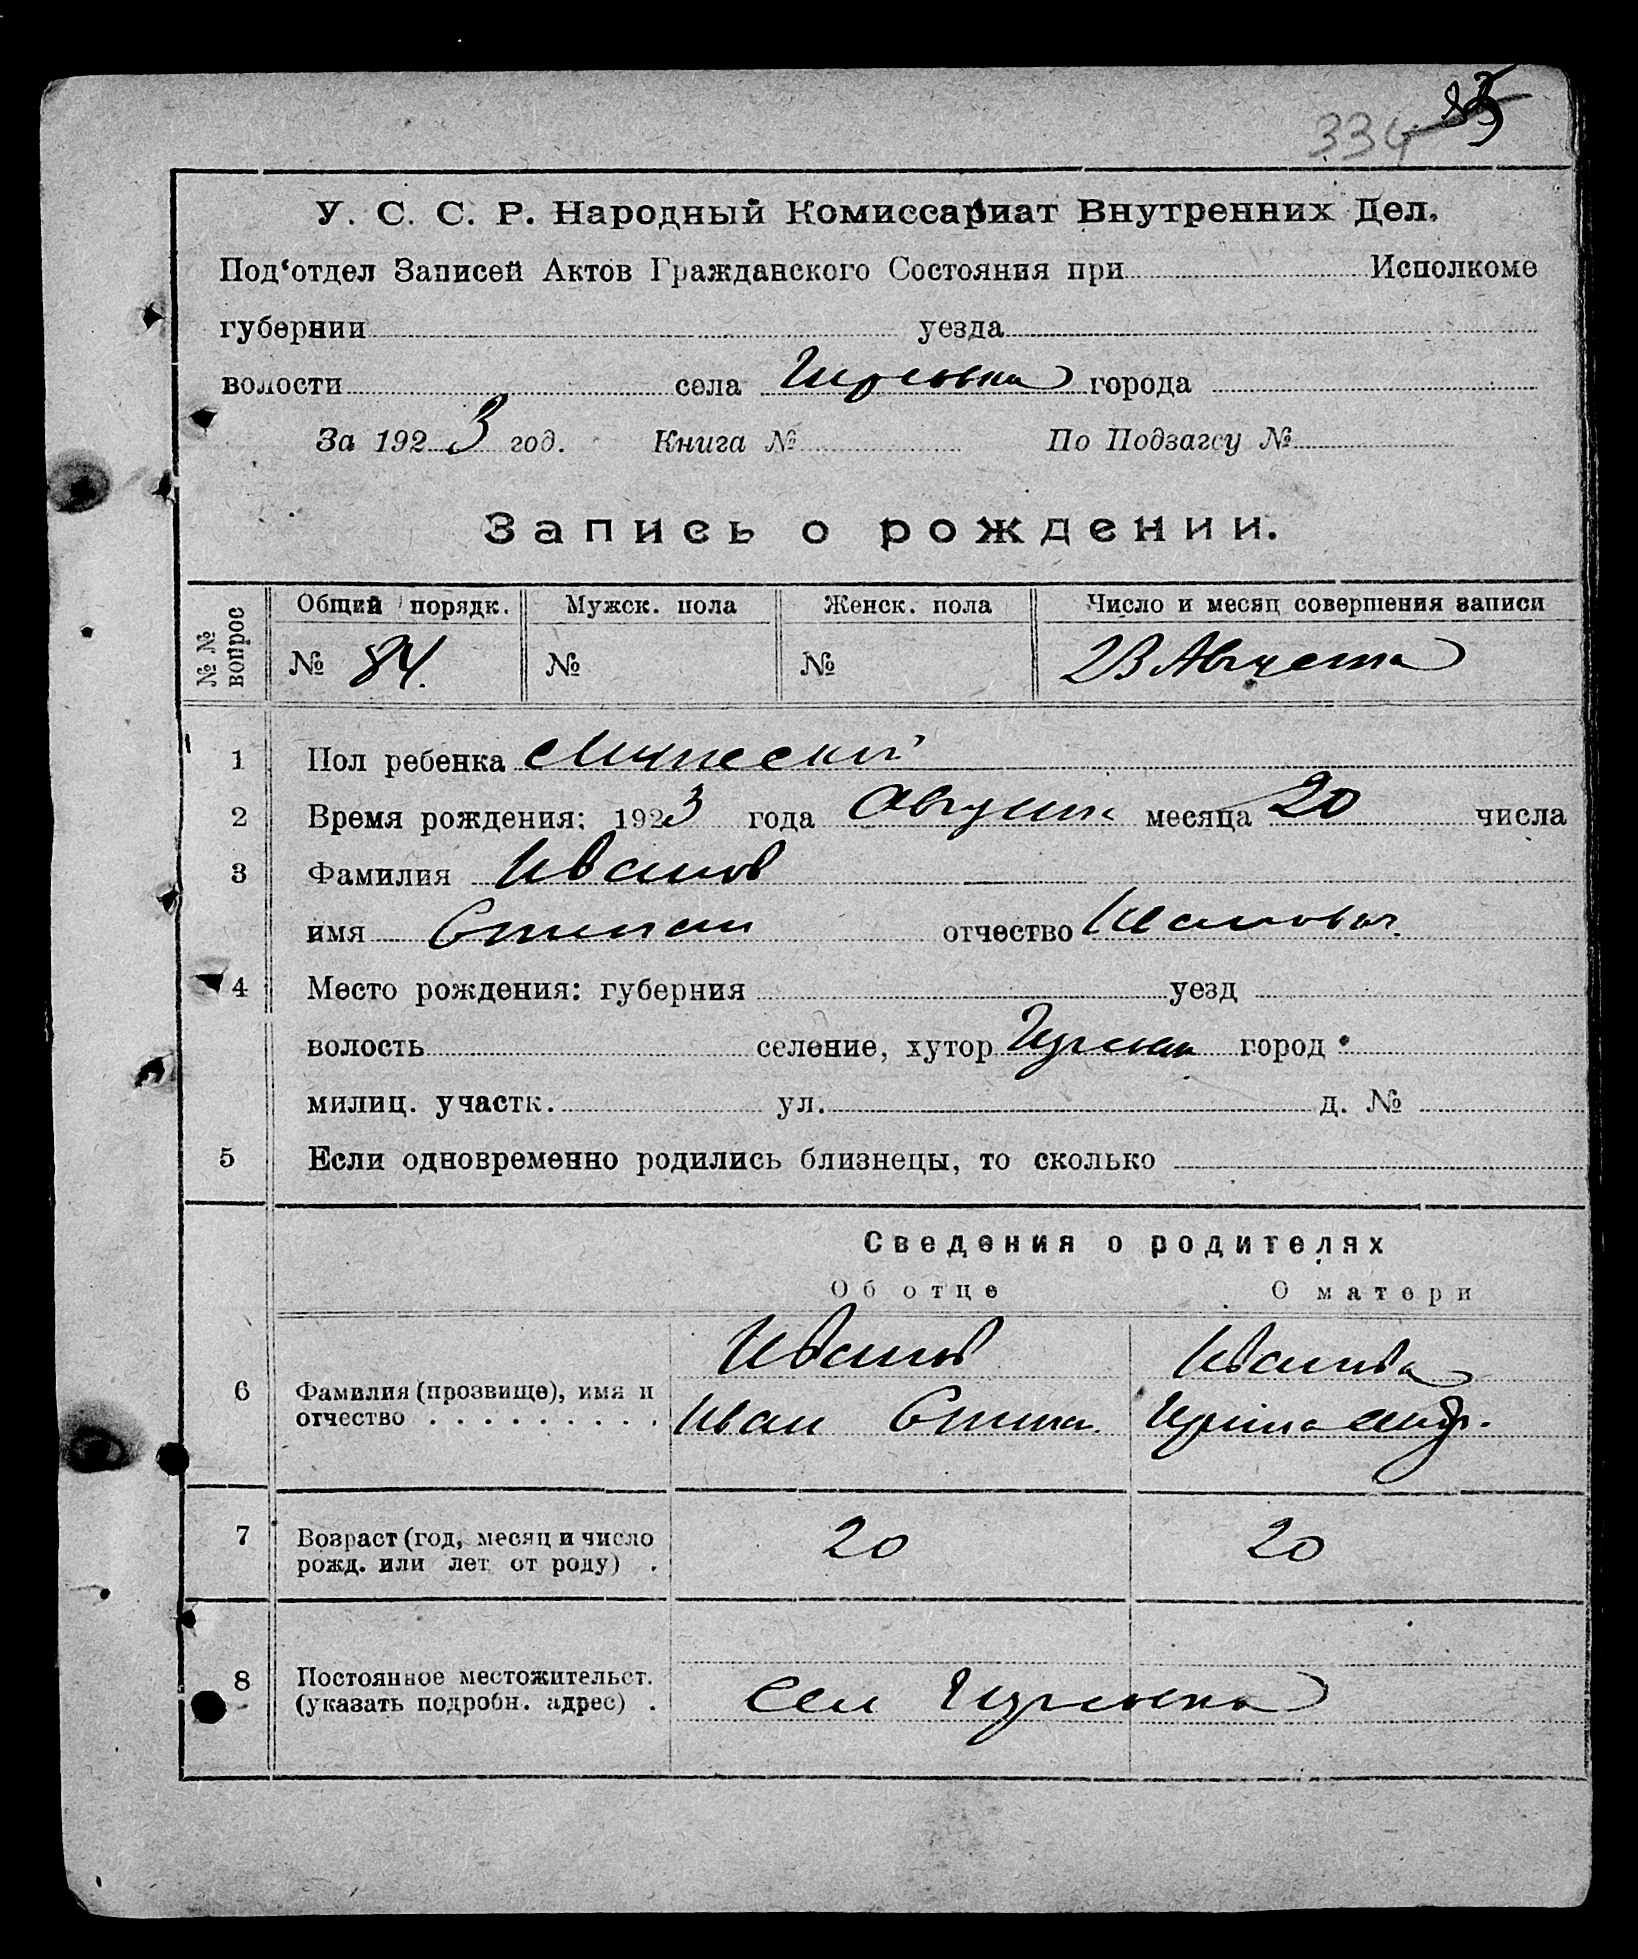 334 85
У. С. С. Р. Народный Комиссариат Внутренних Дел.
Под‘отдел Записей Актов Гражданского Состояния при Исполкоме
губернии уезда
волости села города
За 1923 год. Книга № По Подзагсу №
Запись о рождении.
№№ вопрос Общий порядк. Мужск. пола Женск. пола Число и месяц совершения записи
№ 84. № № 23 Августа
1 Пол ребенка Мужеский
2 Время рождения: 1923 года Августа месяца 20 числа
3 Фамилия Иванов
имя Степан отчество Иванович
4 Место рождения: губерния уезд
волость селение, хутор город
милиц. участк. ул. д. №
5 Если одновременно родились близнецы, то сколько
Сведения о родителях
Об отце О матери
Иванов Иванова
6 Фамилия (прозвище), имя и
отчество Иван Степан. Ирина
7 Возраст (год, месяц и число
рожд. или лет от роду) 20 20
8 Постоянное местожительст.
(указать подробн. адрес) Село